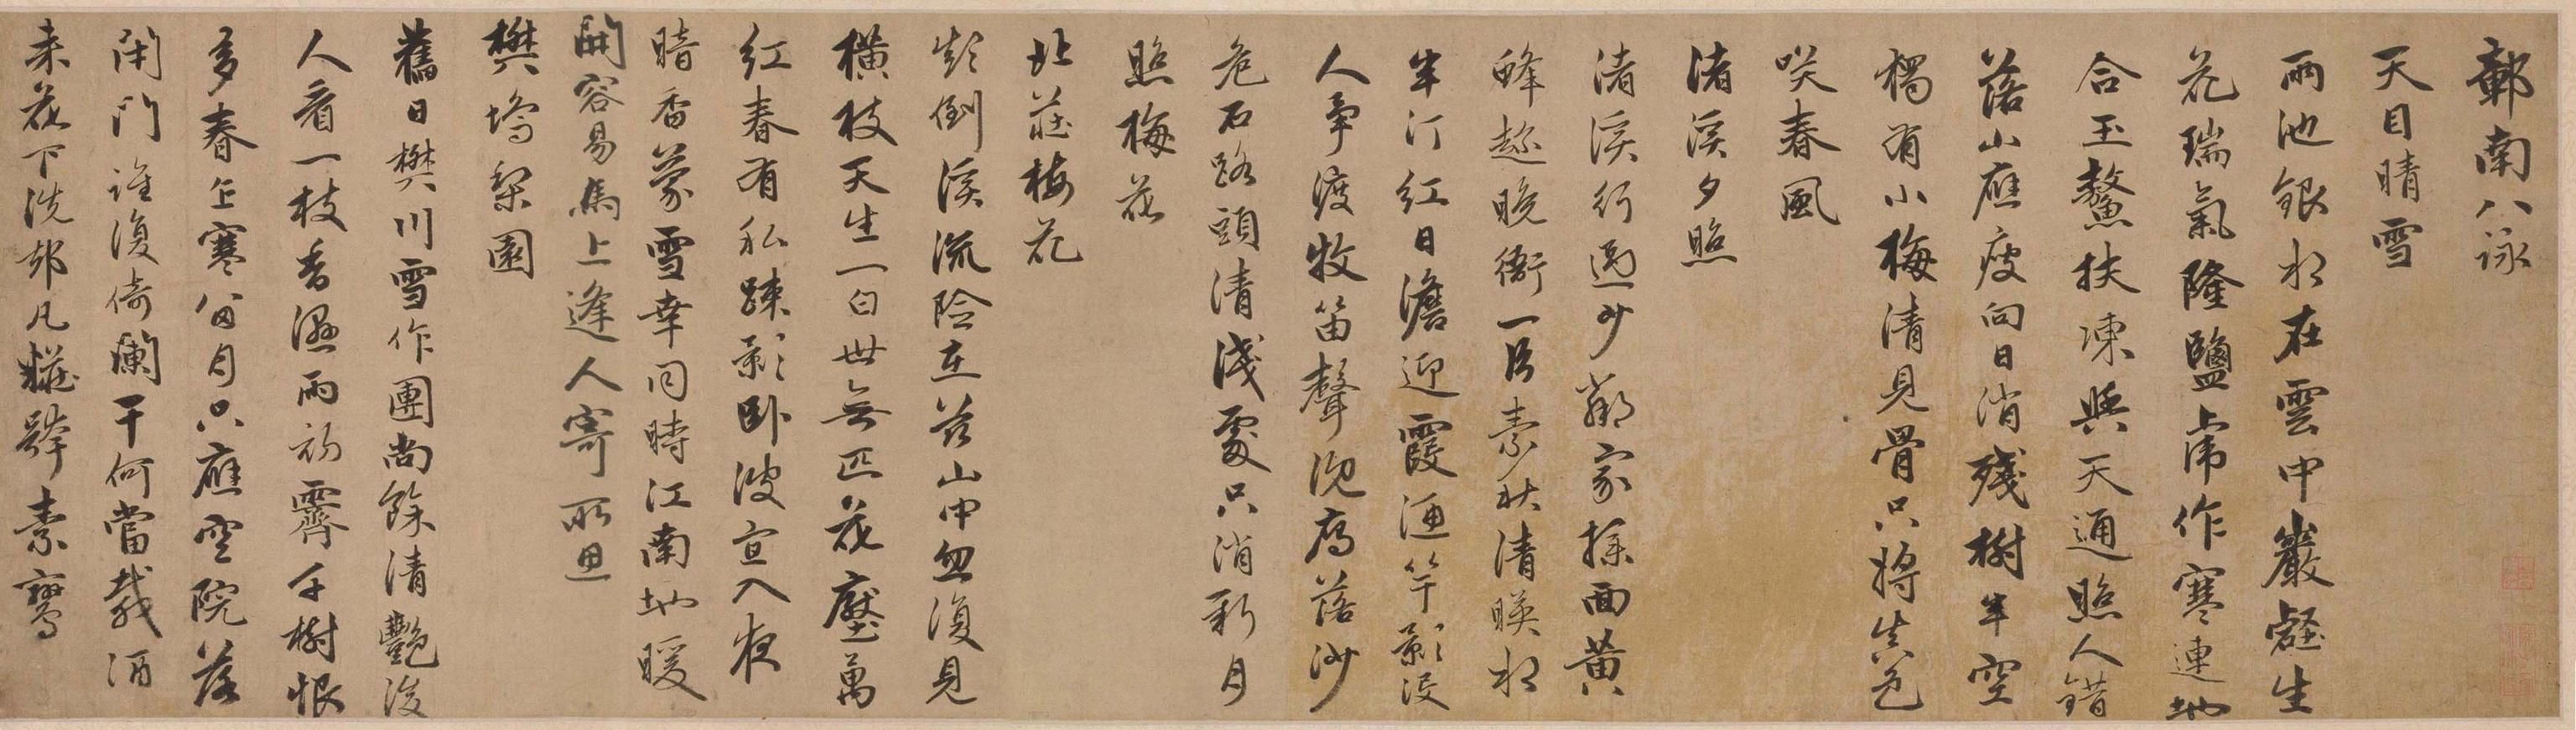 鄣南八詠
天目晴雪
兩池銀水在雲中巖壑生
花瑞氣隆鹽虎作寒連地
合玉鰲扶凍與天通照人錯
落山應瘦向日消殘樹半空
獨有小梅清見骨只將失色
笑春風
渚溪夕照
渚溪行過少鄰家採面黃
蜂趁晚衙一片素秋清映水
半汀紅日澹迎霞漁竿影浸
人爭渡牧笛聲沉鴈落沙
危石路頭清淺處只消新月
照梅花
北莊梅花
影倒溪流險在茲山中忽復見
橫枝天生一白世無匹花壓萬
紅春有私疎影臥波宜入夜
暗香蒙雪幸同時江南地暖
開容易馬上逢人寄所思
樊塢梨園
舊日樊川雪作團尚餘清豔後
人看一枝香溫雨初霽千樹恨
多春上寒留月只應空院落
閉門誰復倚闌干何當載酒
來花下洗却凡糚跨素鸞